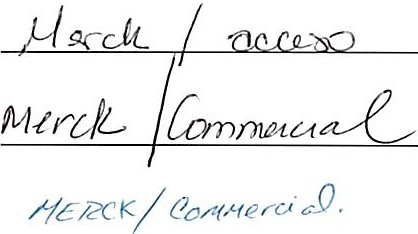 Merck / acceso
Merck / Commercial
MERCK / Commercial.